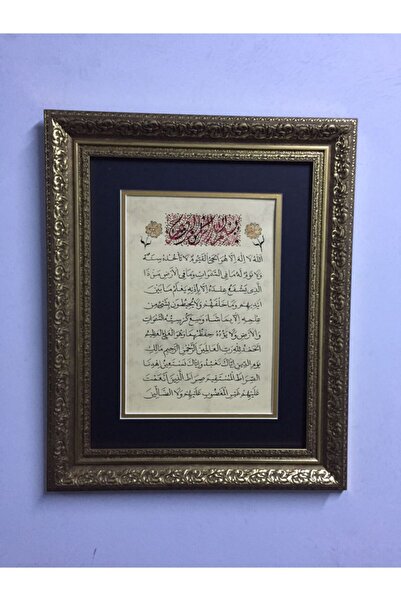 بسم الله الرحمن الرحيم
الله لا اله الا هو الحي القيوم لا تأخذه سنة
ولا نوم له ما في السموات وما في الارض من ذا
الذي يشفع عنده الا باذنه يعلم ما بين
ايديهم وما خلفهم ولا يحيطون بشئ من
علمه الا بما شاء وسع كرسيه السموات
والارض ولا يؤده حفظهما وهو العلي العظيم
الحمد لله رب العالمين الرحمن الرحيم مالك
يوم الدين اياك نعبد واياك نستعين اهدنا
الصراط المستقيم صراط الذين انعمت
عليهم غير المغضوب عليهم ولا الضالين